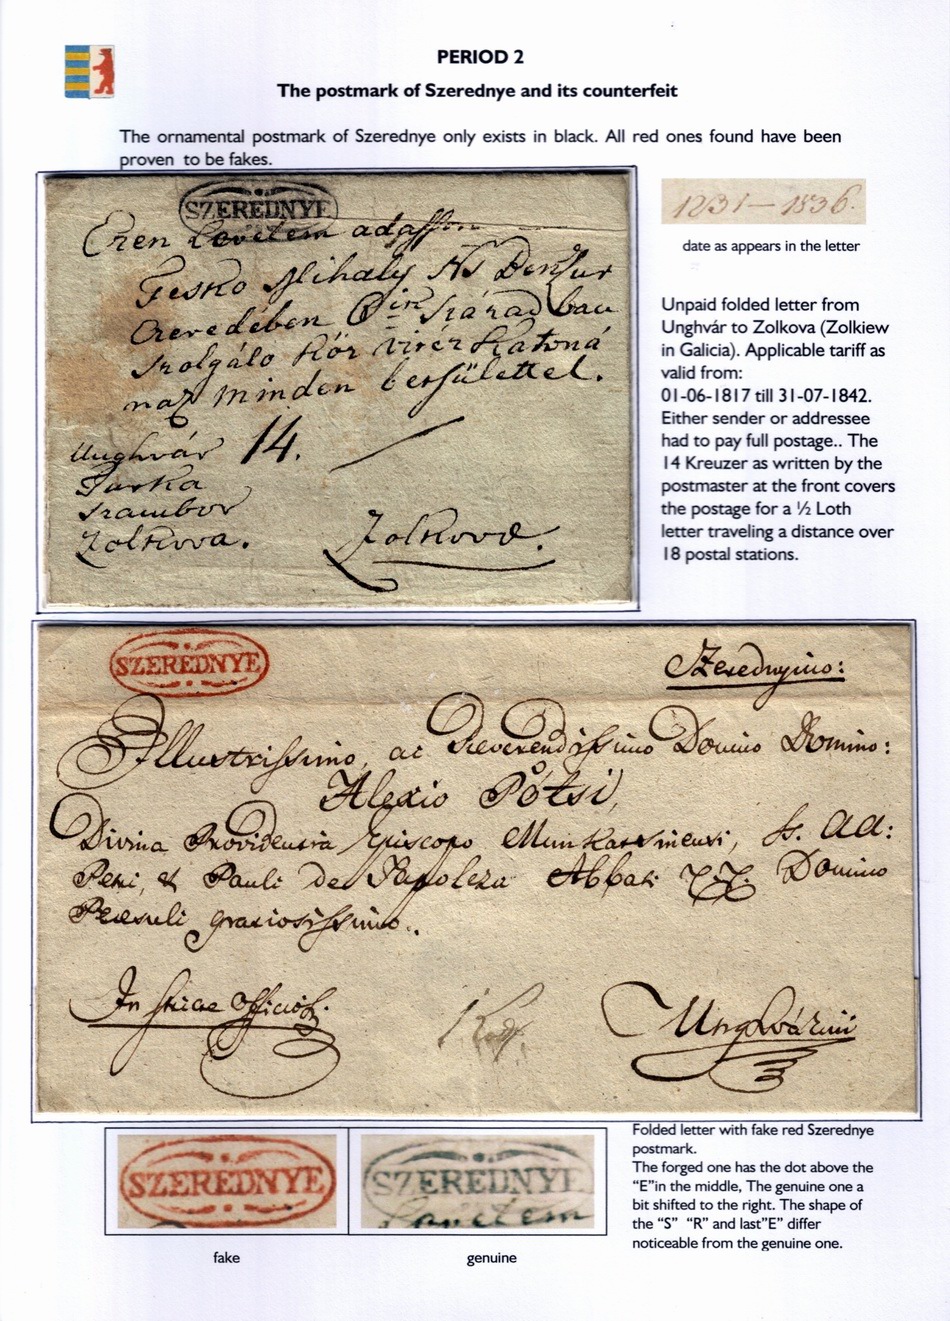 PERIOD 2
The postmark of Szerednye and its counterfeit
The ornamental postmark of Szerednye only exists in black. All red ones found have been
proven to be fakes.
SZEREDNYE
Ezen Levelem adasson
Fesko Mihaly
Ezeredében 6 in Század bau
szolgáló Köz vitéz Katoná
nak minden betsülettel.
Unghvár 14.
Turka
Szambor
Zolkova. Zolkova.
1831 — 1836.
date as appears in the letter
Unpaid folded letter from
Unghvár to Zolkova (Zolkiew
in Galicia). Applicable tariff as
valid from:
01-06-1817 till 31-07-1842.
Either sender or addressee
had to pay full postage.. The
14 Kreuzer as written by the
postmaster at the front covers
the postage for a ½ Loth
letter traveling a distance over
18 postal stations.
SZEREDNYE
Szerednyino:
Illustrissimo, ac Reverendissimo Domino Domino:
Alexio Pótsi,
Divina Providentia Episcopo Munkatsiensi, S. AA:
Petri, et Pauli de Tapolcza Abbati Domino
Praesuli gratiosissimo..
In Officiosis.
Unghvárini
SZEREDNYE
SZEREDNYE
Levelem
fake
genuine
Folded letter with fake red Szerednye
postmark.
The forged one has the dot above the
“E”in the middle, The genuine one a
bit shifted to the right. The shape of
the “S” “R” and last”E” differ
noticeable from the genuine one.